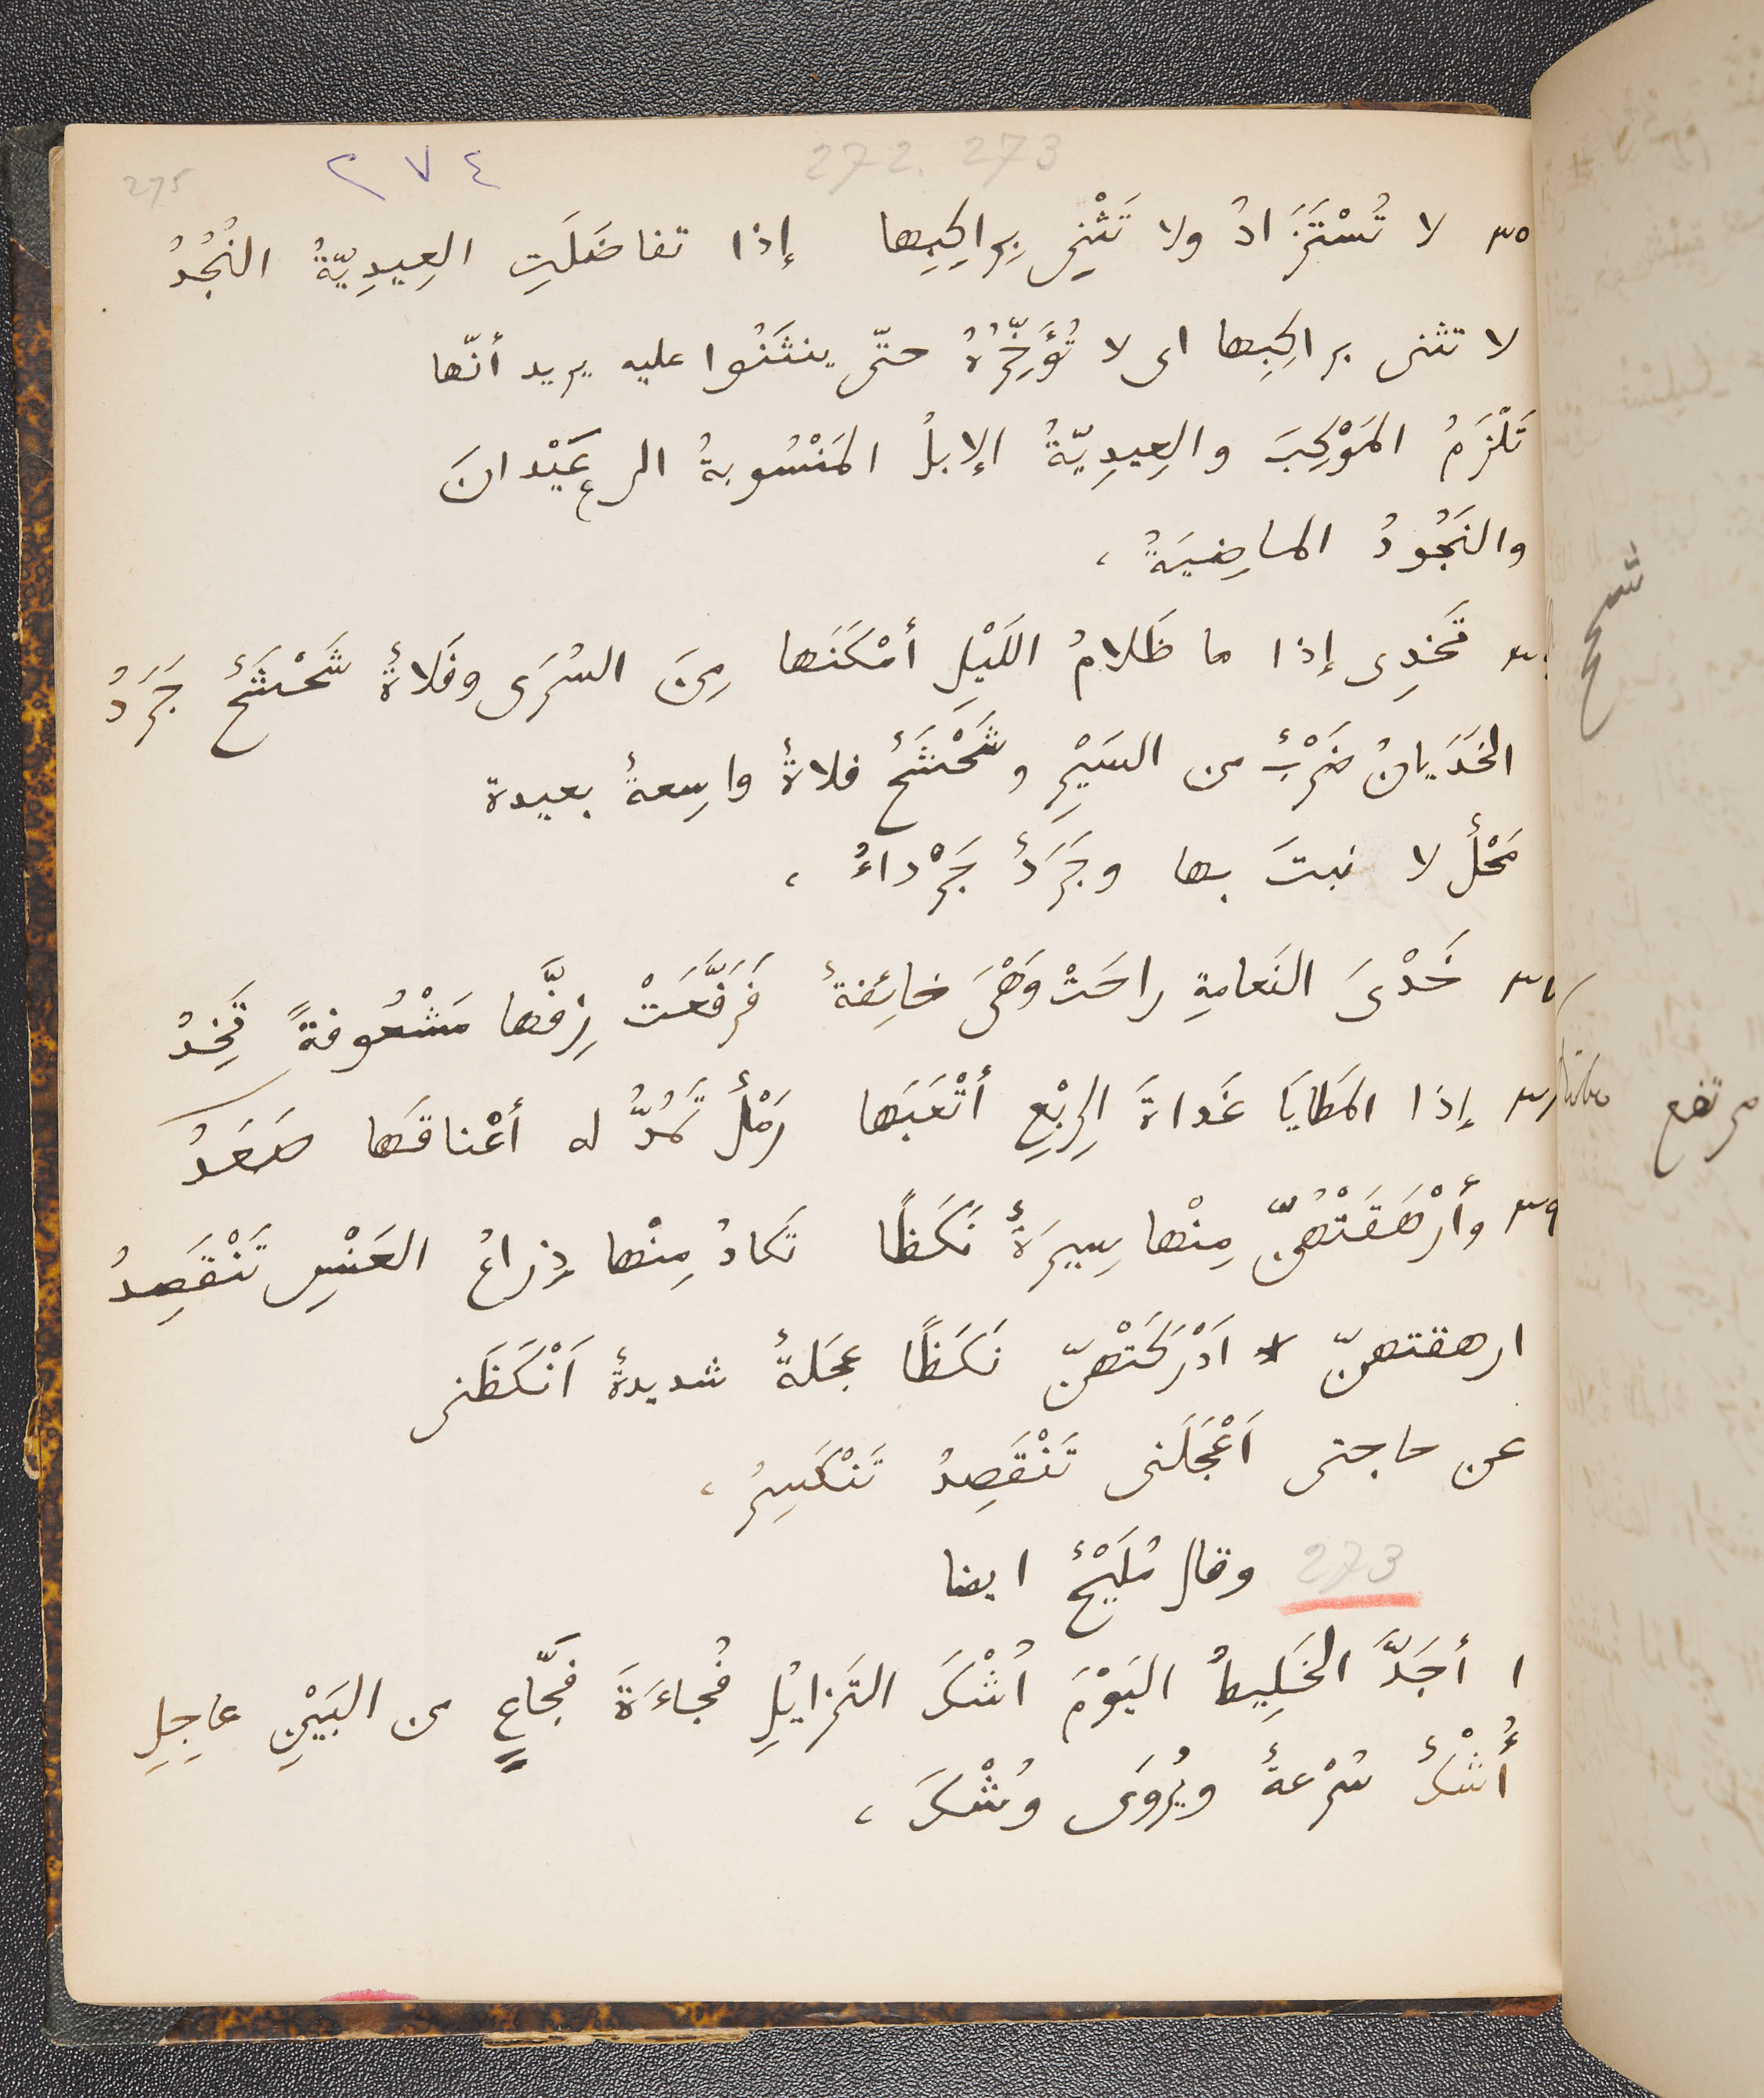 275 ٢٧٤ 272. 273
٣٥ لا تُسْتَزَادُ ولا تَثْنِى بِراكِبِها إذا تفاضَلَتِ العِيدِيّةُ النُجُدُ
لا تثنى براكِبِها اى لا تُؤَخِّرُهُ حتّى ينثَنُوا عليه يريد أنّها
تَلْزَمُ المَوْكِبَ والعِيدِيّةُ الإبلُ المَنْسُوبةُ الى عَيْدانَ
والنَجُودُ الماضِيَةُ ،
تَخْدِى إذا ما ظَلامُ اللَيْلِ أمْكَنَها مِنَ السُرَى وفَلاةٌ شَحْشَحٌ جَرَدُ
الخَدَيانُ ضَرْبٌ من السَيْرِ وشَحْشَحٌ فلاةٌ واسِعةٌ بعيدة
مَحْلٌ لا نبتَ بها وجَرَدٌ جَرْداءُ ،
٣٧ خَدْىَ النَعامةِ راحَتْ وَهْىَ خائِفةٌ فَرَفَّعَتْ زِفَّها مَشْعُوفةً تَخِدُ
٣٨ إذا المَطايَا غَداةَ الرِبْعِ أتْعَبَها رَمْلٌ تَمُدُّ له أعْناقَها صَعَدُ
٣٩ وأرْهَقَتْهُنّ مِنْها سِيرَةٌ نَكَظًا تَكادُ مِنْها ذِراعُ العَنْسِ تَنْقَصِدُ
ارهقتهنّ اَدْرَكَتْهنّ نَكَظًا عجَلةٌ شديدةٌ اَنْكَظَنى
عن حاجتى اَعْجَلَنى تَنْقَصِدُ تَنْكَسِرُ ،
273 وقال مُلَيْحٌ ايضا
١ أجَدَّ الخَلِيطُ اليَوْمَ اُشْكَ التَزايُلِ فُجاءَةَ فَجّاعٍ من البَيْنِ عاجِلِ
أُشْكٌ سُرْعةٌ ويُروَى وُشْكَ ،
شحح
مرتفع